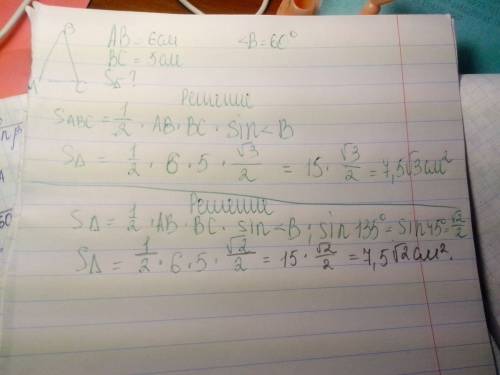 B
AB = 6см <B=60°
BC = 5см
C
S△ ?
Решение
S ABC = 1/2 · AB · BC · sin <B
S△ = 1/2 · 6 · 5 · √3/2 = 15 · √3/2 = 7,5√3 см²
Решение
S△ = 1/2 · AB · BC · sin <B ; sin 135° = sin 45° = √2/2
S△ = 1/2 · 6 · 5 · √2/2 = 15 · √2/2 = 7,5√2 см².